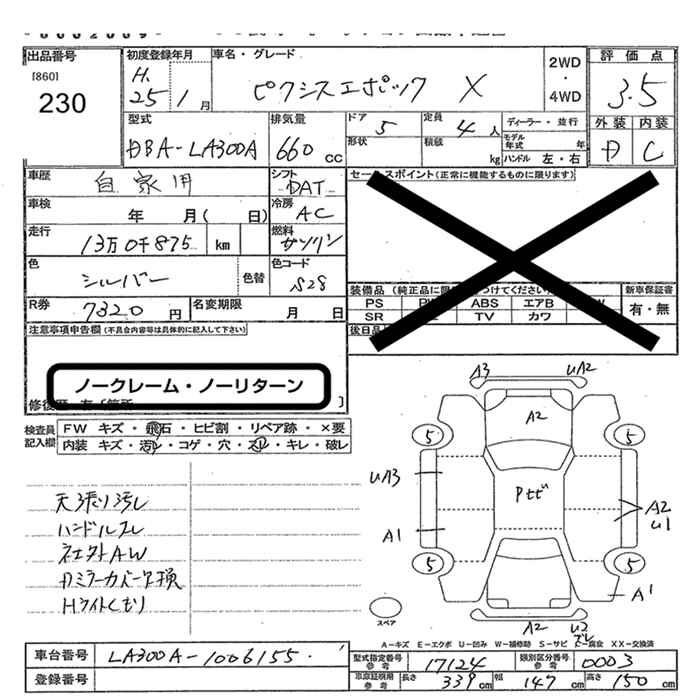 出品番号
[860]
230
初度登録年月
H.
25 1月
車名・グレード
ピクシスエポック X
2WD
・
4WD
評価点
3.5
外装 内装
D C
型式
DBA-LA300A
排気量
660 cc
ドア
5
形状
定員
4人
積載
kg
ディーラー・並行
モデル年式 年
ハンドル 左・右
車歴
自家用
シフト
DAT
車検
年 月( 日)
冷房
AC
走行
13万0千875 km
燃料
ガソリン
色
シルバー
色替
色コード
S28
R券
7320円
名変期限
月 日
セールスポイント(正常に機能するものに限ります)
新車保証書
有・無
PS ABS エアB
SR TV カワ
注意事項申告欄(不具合内容等は具体的に記入して下さい)
ノークレーム・ノーリターン
検査員記入欄
FW キズ・飛石・ヒビ割・リペア跡・×要
内装 キズ・汚レ・コゲ・穴・スレ・キレ・破レ
天張り汚レ
ハンドルスレ
社外AW
Dミラーカバー交換
Hライトくもり
A3 UA2
A2
5 5
UA3
Pセビ
A2
U1
A1
5 5
A1
A2 U2
スレ
スペア
A-キズ E-エクボ U-凹み W-補修跡 S-サビ C-腐食 XX-交換済
車台番号
LA300A-1006155
登録番号
型式指定番号
参考
17124
類別区分番号
参考
0003
車庫証明用
参考
長さ 339cm 幅 147cm 高さ 150cm